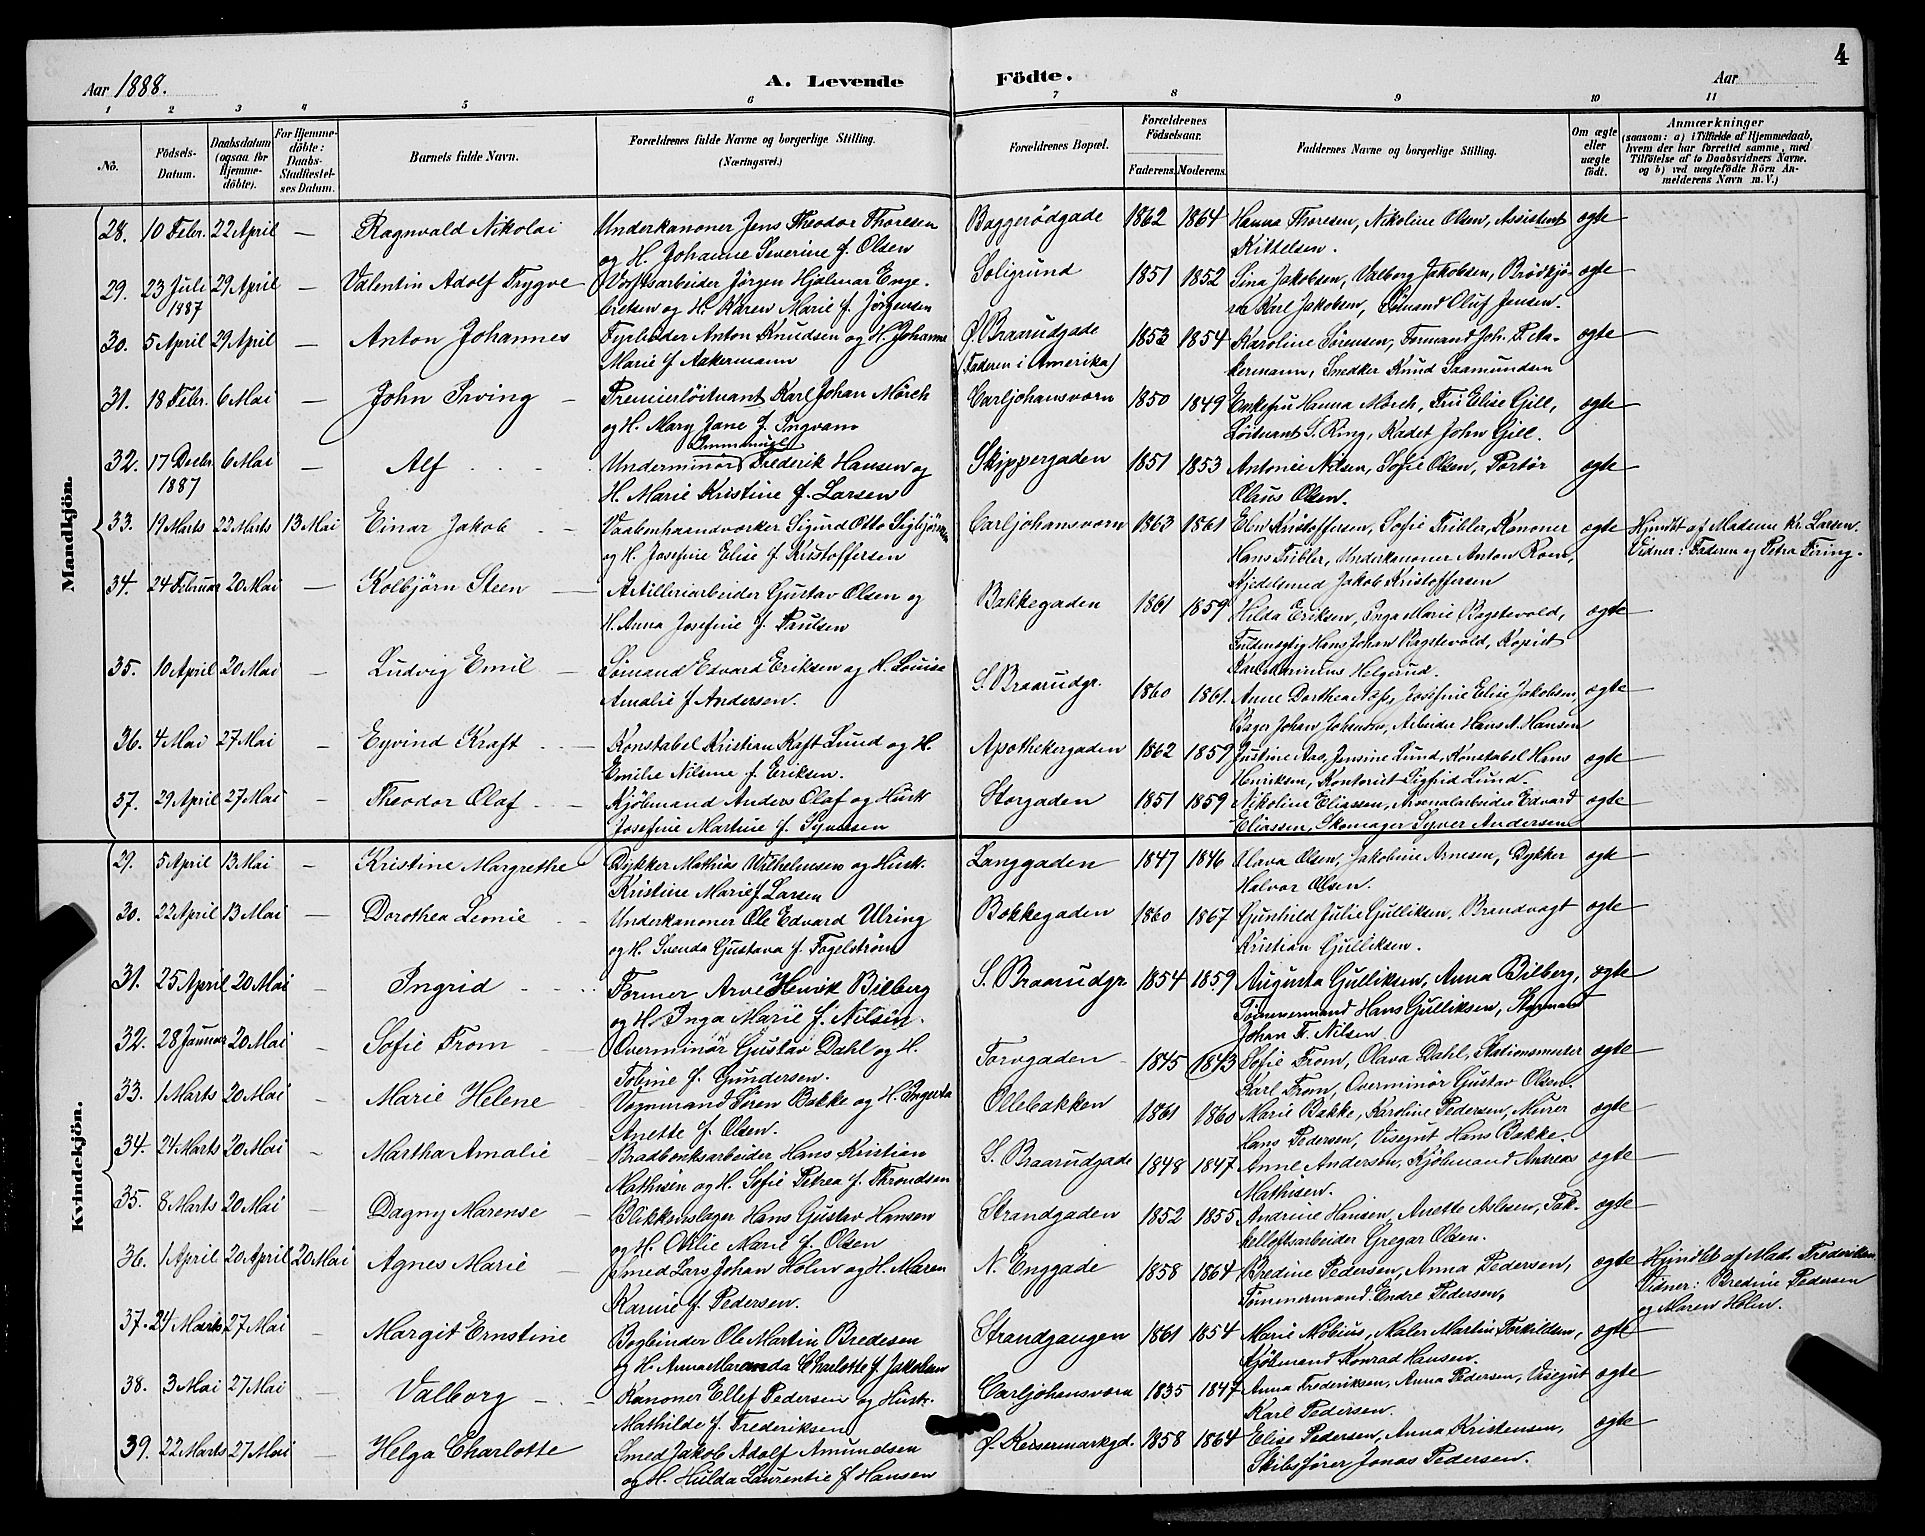 4
Aar 1888.
A. Levende Födte.
Aar
1 2 3 4 5 6 7 8 9 10 11
No.
Födsels-Datum.
Daabsdatum (ogsaa for Hjemmedöbte).
For Hjemmedöbte: Daabs-Stadfæstelses Datum.
Barnets fulde Navn.
Forældrenes fulde Navne og borgerlige Stilling. (Næringsvei.)
Forældrenes Bopæl.
Forældrenes Födselsaar.
Faderens. Moderens.
Faddernes Navne og borgerlige Stilling.
Om ægte eller uægte födt.
Anmærkninger
(saasom: a) i Tilfælde af Hjemmedaab, hvem der har forrettet samme, med Tilföielse af to Daabsvidners Navne. og b) ved uægtefödte Börn Anmelderens Navn m. V.)
Mandkjön.
28. 10 Febr. 22 April — Ragnvald Nikolai Underkanoner Jens Theodor Thoresen Baggerødgade 1862 1864 Hanna Thoresen, Nikoline Olsen, Assistent ægte
og H. Johanne Severine f. Olsen Kittelsen.
29. 23 Juli 29 April — Valentin Adolf Trygve Værftsarbeider Jørgen Hjalmar Enge- Soligrund 1851 1852 Sina Jakobsen, Valborg Jakobsen, Brødkjø- ægte
1887 bretsen og H. Karen Marie f. Jørgensen re Karl Jakobsen, Sømand Oluf Jensen.
30. 5 April 29 April — Anton Johannes Fyrbøder Anton Knudsen og H. Johanne Ø. Braarudgade 1853 1854 Karoline Sørensen, Formand Joh. P. Aa- ægte
Marie f. Aakermann (Faderen i Amerika) kermann, Snedker Knud Saamundsen
31. 18 Febr. 6 Mai — John Irving — Premierløitnant Karl Johan Mörch Carljohansværn 1850 1849 Enkefru Hanna Mörch, Fru Elise Gill, ægte
og H. Mary Jane f. Ingvam Løitnant S. Ring, Kadet John Gill.
Immanuel
32. 17 Decbr. 6 Mai — Alf Underminör Frederik Hansen og Skippergaden 1851 1853 Antonie Nilsen, Sofie Olsen, Portör ægte
1887 H. Marie Kristine f. Larsen Olaus Olsen.
33. 19 Marts 22 Marts 13 Mai Einar Jakob — Vaabenhaandværker Sigurd Otto Sigbjörnsen Carljohansværn 1863 1861 Kristoffersen, Sofie Tribler, Kanoner ægte Hjmdbt af Madame Kr. Larsen.
og H. Josefine Elise f. Kristoffersen Hans Tribler, Underkanoner Anton Roen, Vidner: Faderen og Petra Firing.
Kjedelsmed Jakob Kristoffersen
34. 24 Februar 20 Mai — Kolbjörn Steen — Artilleriarbeider Gustav Olsen og Bakkegaden 1861 1859 Hilda Eriksen, Inga Marie Bagstevold, ægte
H. Anna Josefine f. Paulsen Fuldmægtig Hans Johan Bagstevold, Kopist
Karl Marinius Helgerud.
35. 10 April 20 Mai — Ludvig Emil — Sømand Edvard Eriksen og H. Louise S. Braarudgr. 1860 1861 Anne Dorthea Aas, Josefine Elise Jakobsen, ægte
Amalie f Andersen. Bager Johan Johansen, Arbeider Hans A. Hansen
36. 4 Mai 27 Mai — Eyvind Kraft — Konstabel Kristian Kaft Lund og H. Apothekergaden 1862 1859 Justine Aas, Jensine Lund, Konstabel Hans ægte
Emilie Nilsine f. Eriksen. Henriksen, Kontorist Sigfrid Lund.
37. 29 April 27 Mai — Theodor Olaf — Kjöbmand Anders Olaf og Hust. Storgaden 1851 1859 Nikoline Eliassen, Arsenalarbeider Edvard ægte
Josefine Martine f. Syversen Eliassen, Skomager Syver Andersen
Kvindekjön.
29. 5 April 13 Mai — Kristine Margrethe Dykker Mathias Wilhelmsen og Hust. Langgaden 1847 1846 Olava Olsen, Jakobine Arnesen, Dykker ægte
Kristine Marie f. Larsen Halvor Olsen.
30. 22 April 13 Mai — Dorothea Leonie Underkanoner Ole Edvard Ulring Bakkegaden 1860 1867 Gunhild Julie Gulliksen, Brandvagt ægte
og H. Svenda Gustava f. Fogelström Kristian Gulliksen.
31. 25 April 20 Mai — Ingrid Former Arve Henrik Bilberg S. Braarudgr. 1854 1859 Augusta Gulliksen, Anna Bilberg, ægte
og H. Inga Marie f. Nilsen. Tømmermand Hans Gulliksen, Styrmand
Johan Fr. Nilsen
32. 28 Januar 20 Mai — Sofie From — Overminör Gustav Dahl og H. Torvgaden 1845 1843 Sofie From, Olava Dahl, Stationsmester ægte
Tobine f. Gundersen. Karl From, Overminör Gustav Olsen.
33. 1 Marts 20 Mai — Marie Helene Vognmand Søren Bakke og H. Ingerta Ollebakken 1861 1860 Marie Bakke, Karoline Pedersen, Murer ægte
Anette f. Olsen. Hans Pedersen, Visegut Hans Bakke.
34. 24 Marts 20 Mai — Martha Amalie — Bradbænksarbeider Hans Kristian S. Braarudgade 1848 1847 Anne Andersen, Kjöbmand Andreas ægte
Mathisen og H. Sofie Petrea f. Throndsen Mathisen.
35. 8 Marts 20 Mai — Dagny Marense — Blikkenslager Hans Gustav Hansen Strandgaden 1852 1855 Andrine Hansen, Anette Aslesen, Tak- ægte
og H. Otilie Marie f. Olsen kelloftsarbeider Gregar Olsen.
36. 1 April 20 April 20 Mai Agnes Marie — Smed Lars Johan Holm og H. Maren N. Enggade 1858 1864 Bredine Pedersen, Anna Pedersen, ægte Hjmdbt af Mad. Frederiksen
Karine f. Pedersen. Tømmermand Endre Pedersen, Vidner: Bredine Pedersen
og Maren Holm.
37. 24 Marts 27 Mai — Margit Ernstine Bogbinder Ole Martin Bredesen Strandgangen 1861 1854 Marie Möbius, Maler Martin Torkildsen, ægte
og H. Anna Maranda Charlotte f. Jakobsen Kjöbmand Konrad Hansen.
38. 3 Mai 27 Mai — Valborg — Kanoner Ellef Pedersen og Hustr. Carljohansværn 1835 1847 Anna Frederiksen, Anna Pedersen, Visegut ægte
Mathilde f. Frederiksen Karl Pedersen.
39. 22 Marts 27 Mai — Helga Charlotte Smed Jakob Adolf Amundsen Ø. Keisermarkgd. 1858 1864 Elise Pedersen, Anna Kristensen, ægte
og H. Hulda Laurentie f Hansen Skibsfører Jonas Pedersen.